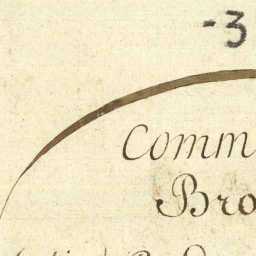 -3
Comm
Bro